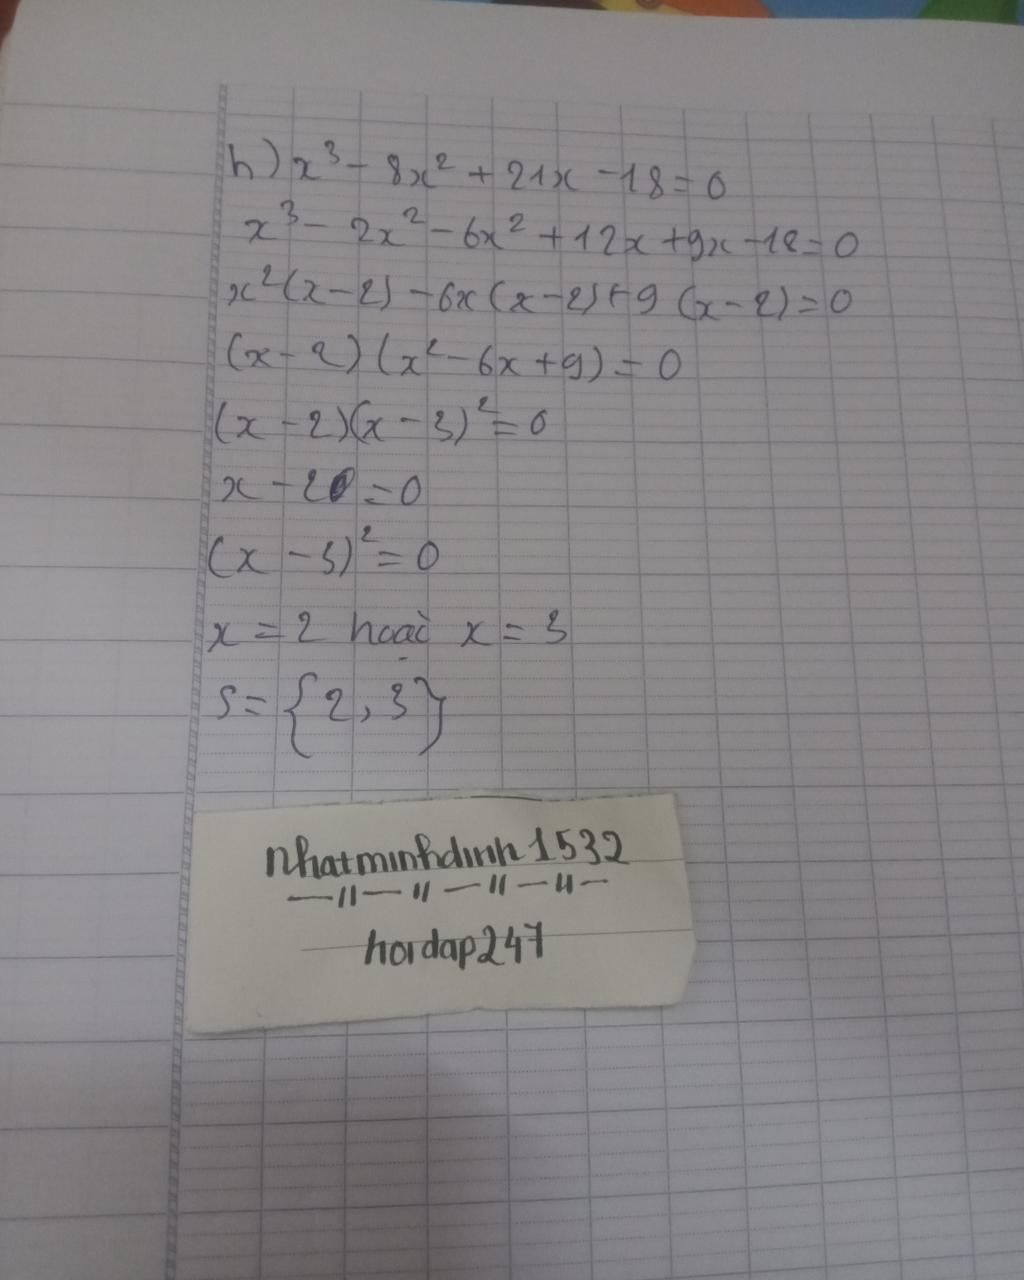 h) x³ - 8x² + 21x - 18 = 0
x³ - 2x² - 6x² + 12x + 9x - 18 = 0
x²(x - 2) - 6x(x - 2) + 9 (x - 2) = 0
(x - 2)(x² - 6x + 9) = 0
(x - 2)(x - 3)² = 0
x - 2 = 0
(x - 3)² = 0
x = 2 hoặc x = 3
S = {2, 3}
nhatminhdinh1532
hoidap247